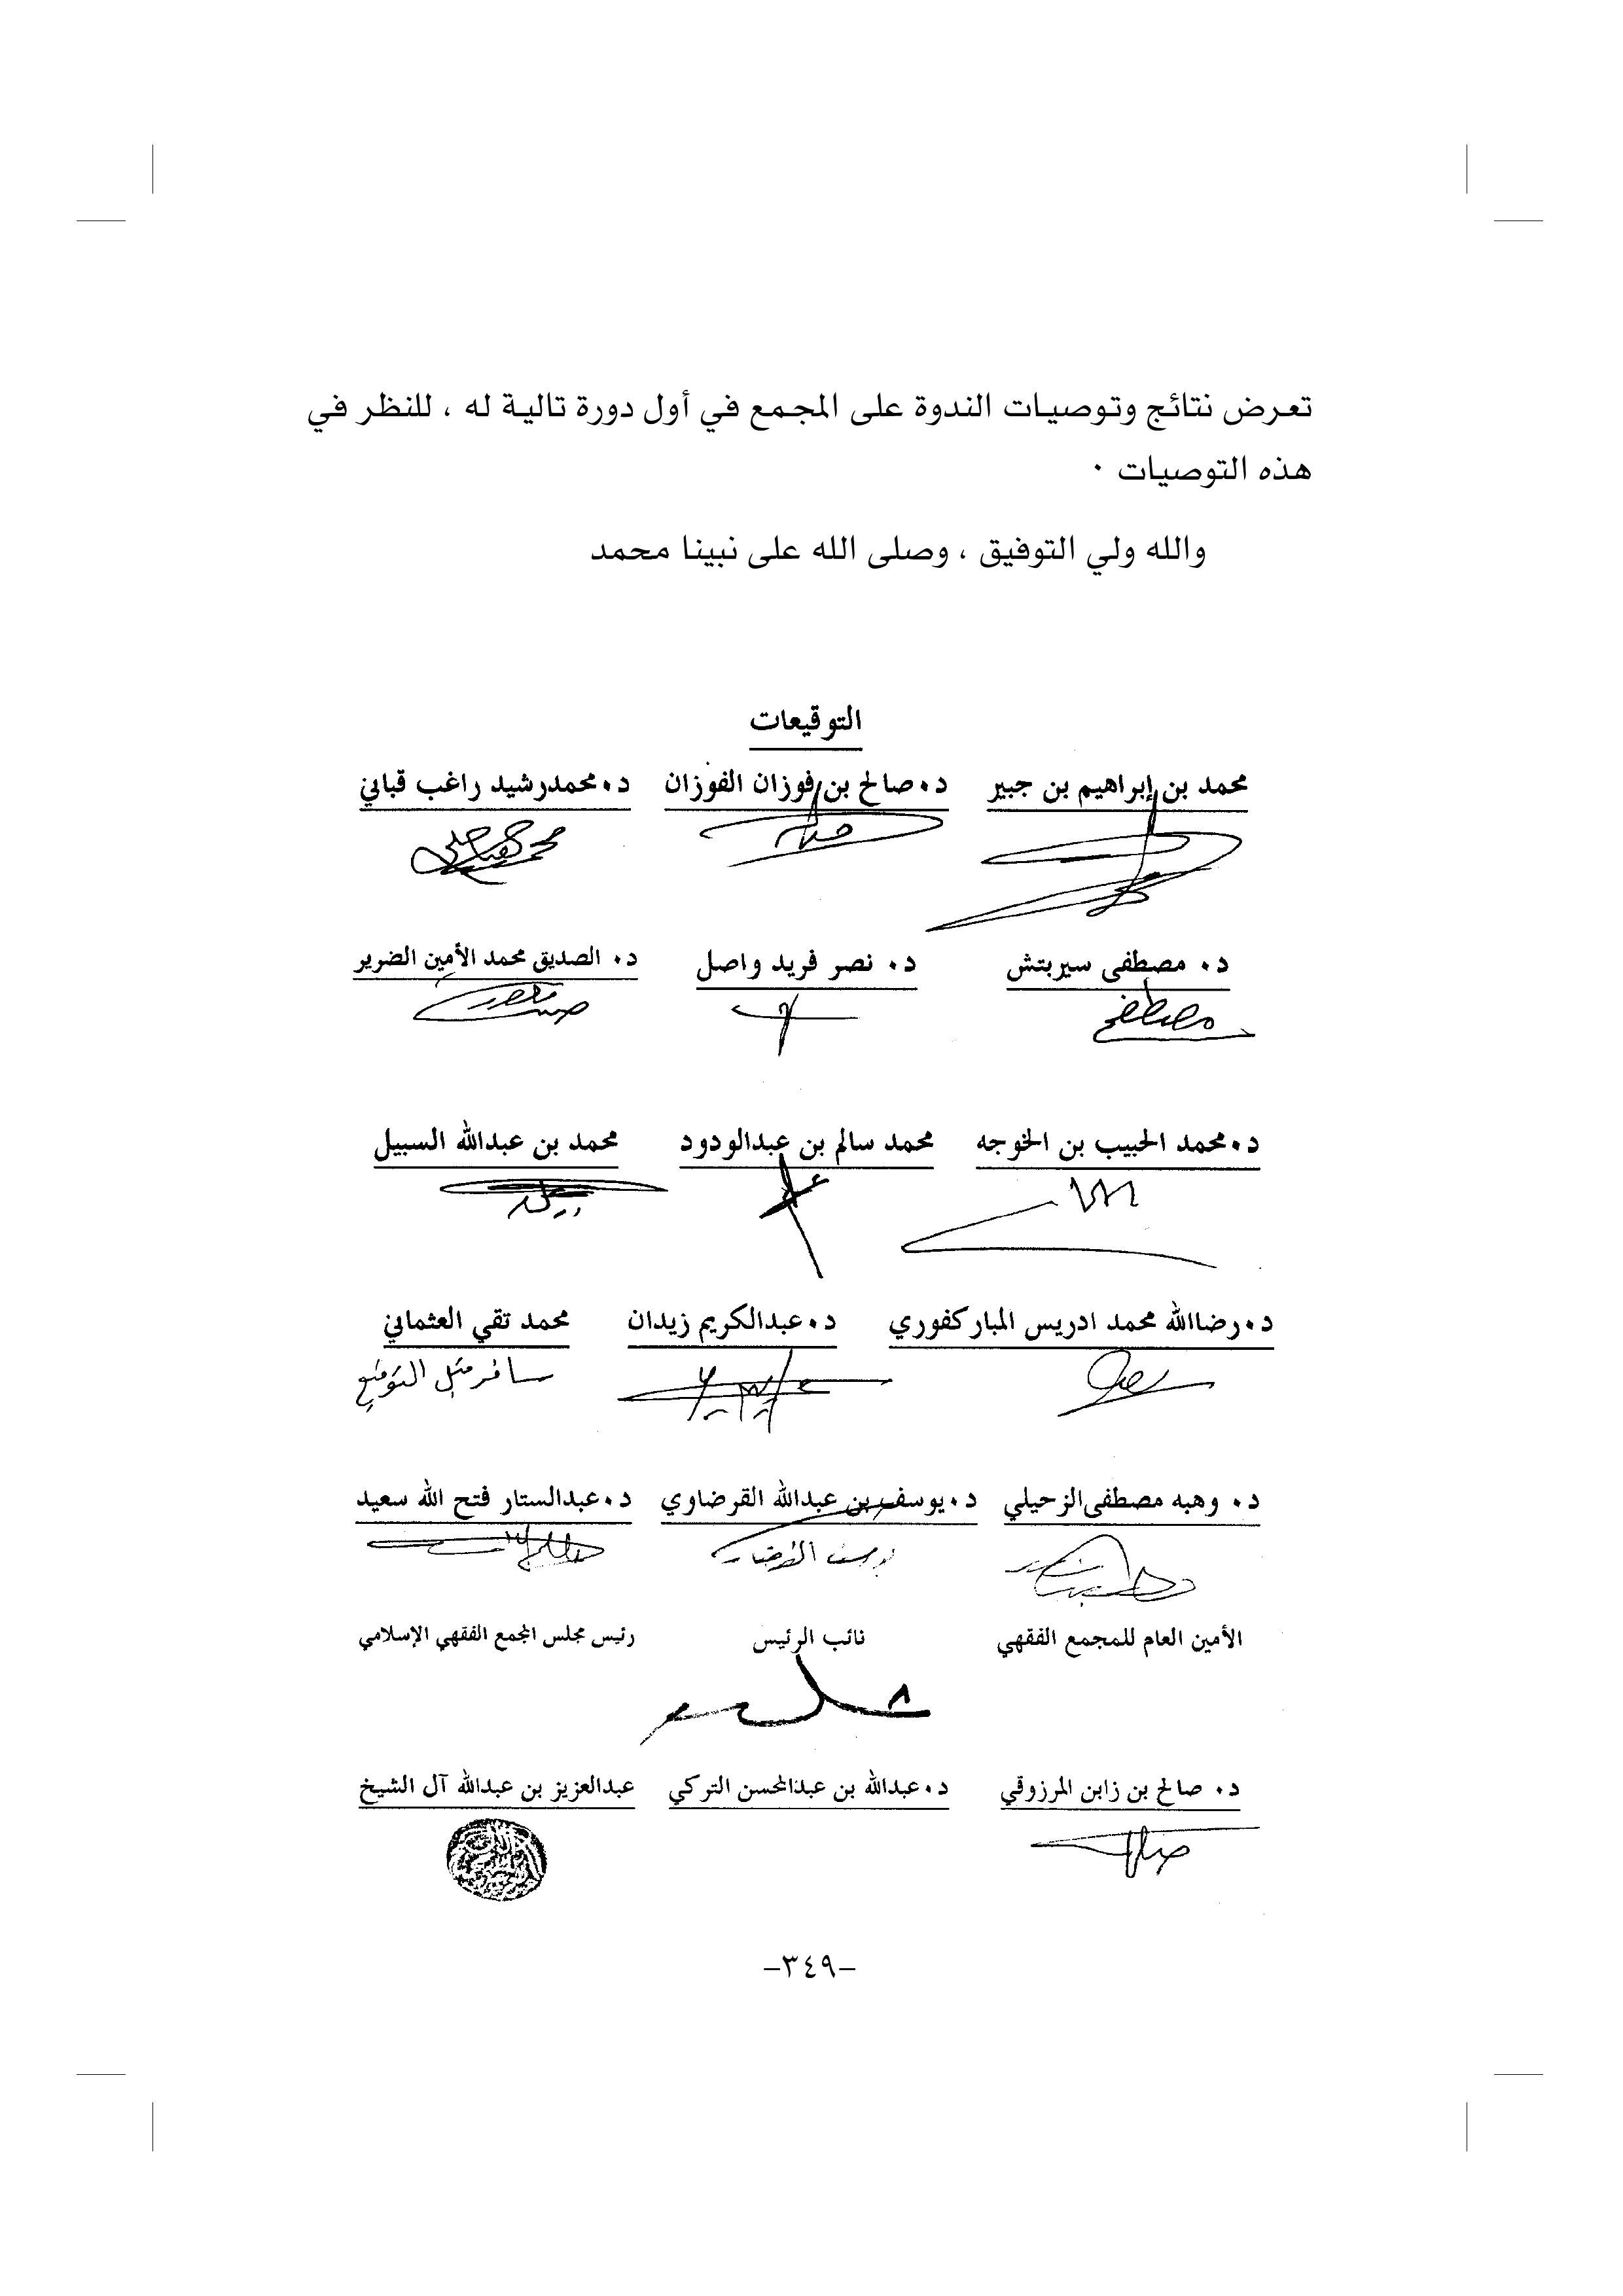 تعرض نتائج وتوصيات الندوة على المجمع في أول دورة تالية له ، للنظر في
هذه التوصيات ٠
والله ولي التوفيق ، وصلى الله على نبينا محمد
التوقيعات
محمد بن إبراهيم بن جبير د٠صالح بن فوزان الفوزان د٠محمدرشيد راغب قباني
د٠ مصطفى سيريتش د٠ نصر فريد واصل د٠ الصديق محمد الأمين الضرير
مصطفى
د٠محمد الحبيب بن الخوجه محمد سالم بن عبدالودود محمد بن عبدالله السبيل
د٠رضاالله محمد ادريس المباركفوري د٠عبدالكريم زيدان محمد تقي العثماني
سافر قبل التوقيع
د٠ وهبه مصطفى الزحيلي د٠يوسف بن عبدالله القرضاوي د٠عبدالستار فتح الله سعيد
يوسف القرضاوي
الأمين العام للمجمع الفقهي نائب الرئيس رئيس مجلس المجمع الفقهي الإسلامي
د٠ صالح بن زابن المرزوقي د٠عبدالله بن عبدالمحسن التركي عبدالعزيز بن عبدالله آل الشيخ
–٣٤٩–